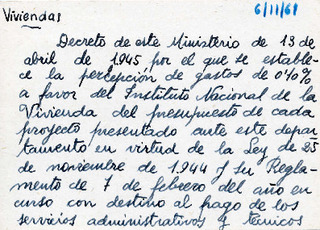 Viviendas
6/11/61
Decreto de este Ministerio de 13 de
abril de 1945 por el que se estable-
ce la percepción de gastos de 0'40%
a favor del Instituto Nacional de la
Vivienda del presupuesto de cada
proyecto presentado ante este depar-
tamento en virtud de la Ley de 25
de noviembre de 1.944 y su Regla-
mento de 7 de febrero del año en
curso con destino al pago de los
servicios administrativos y técnicos